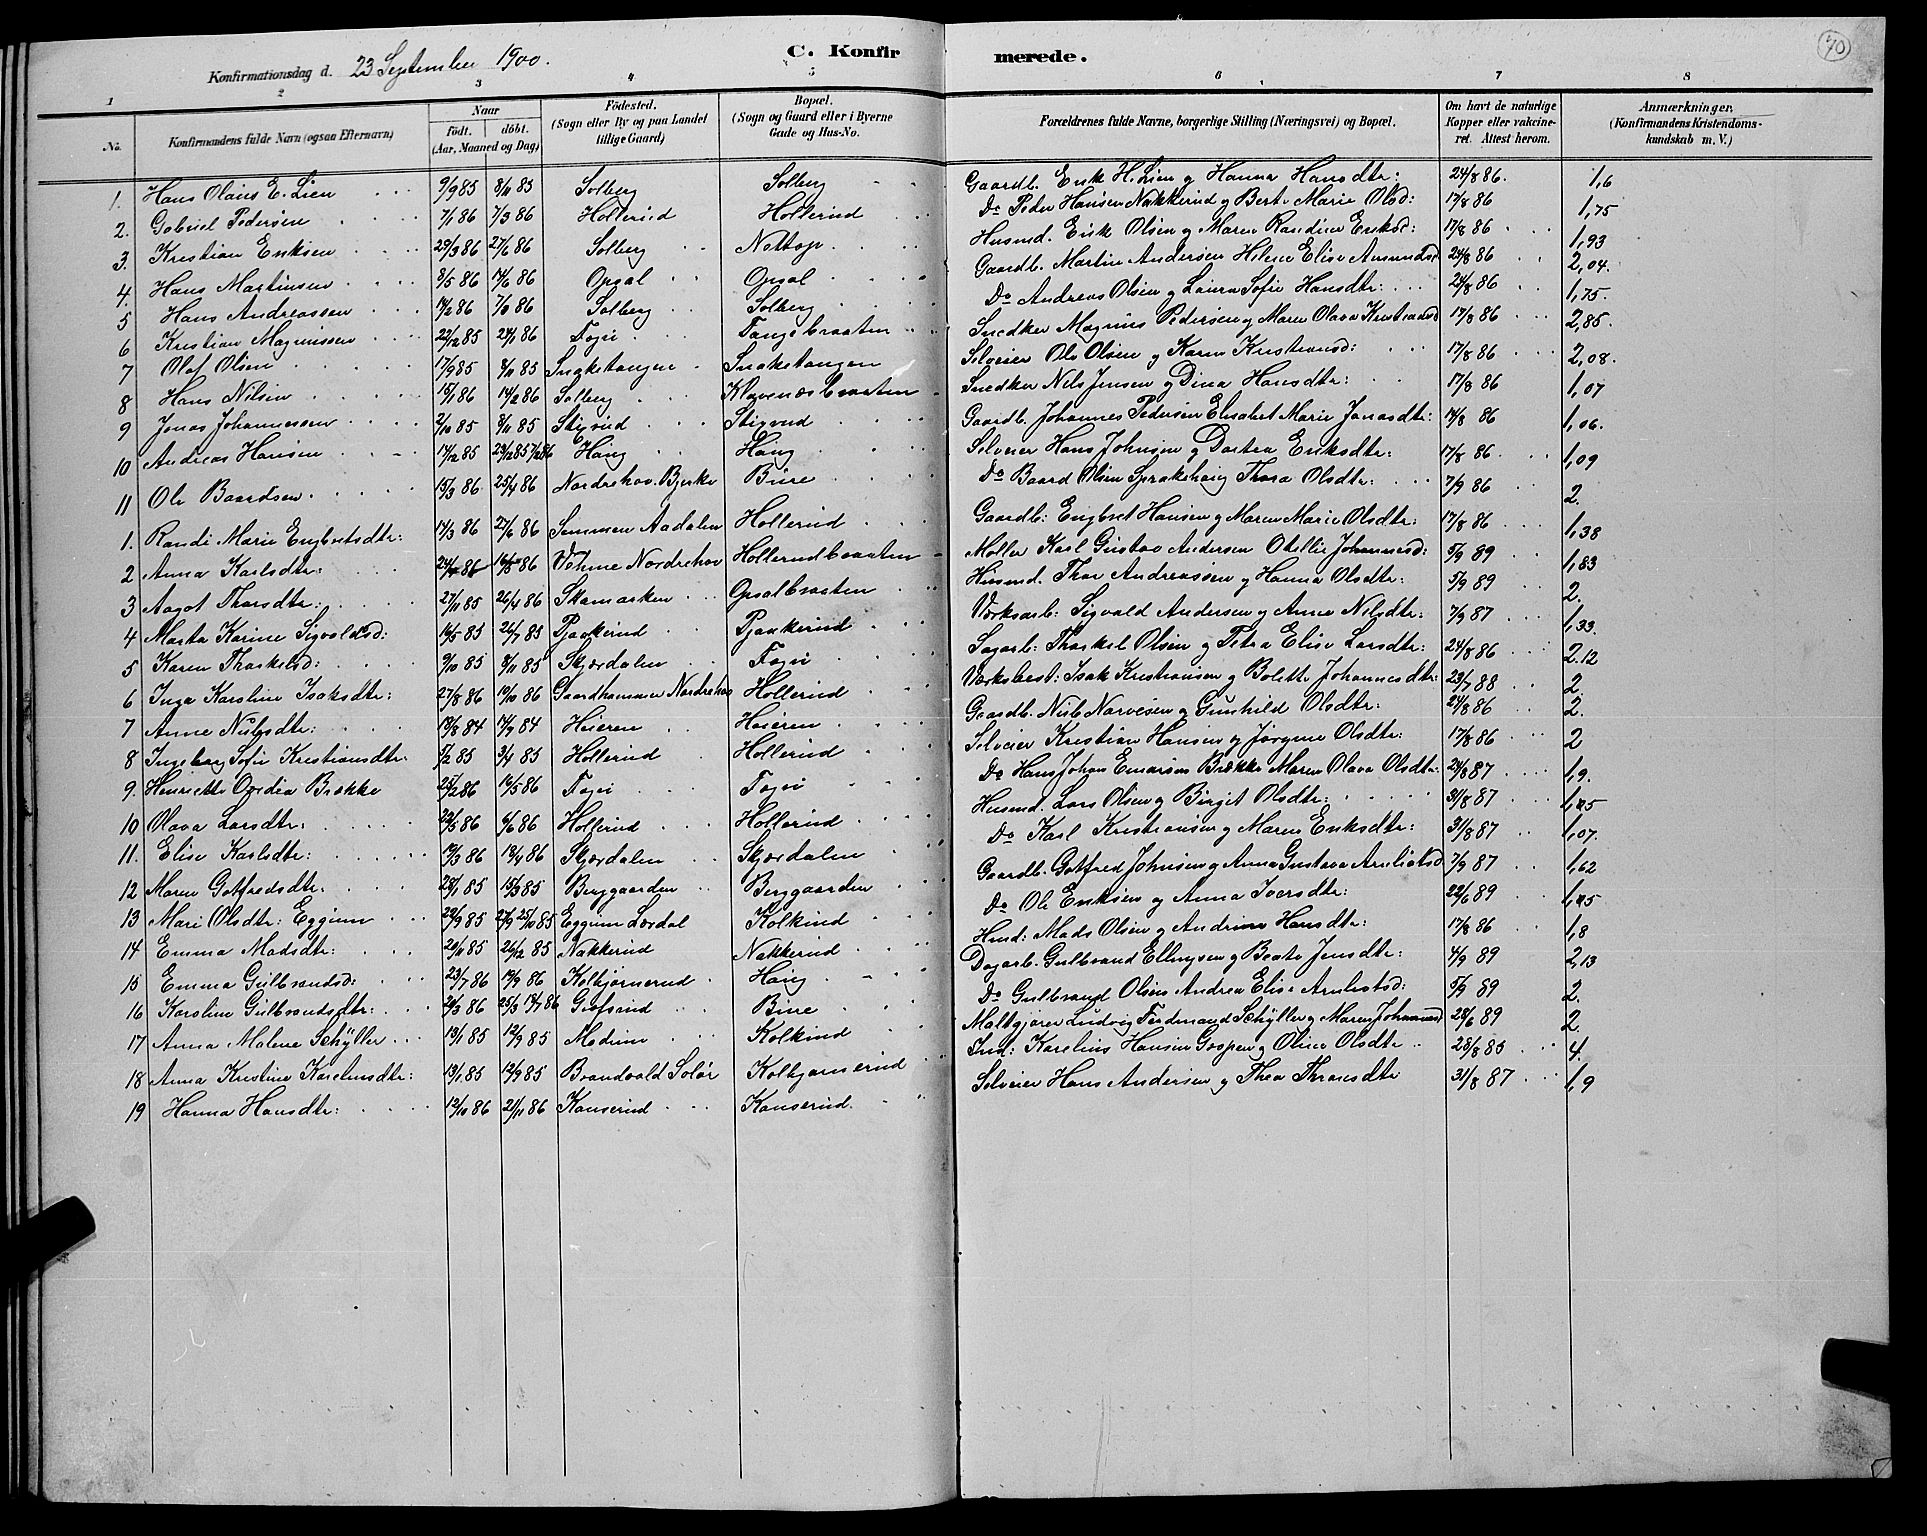 C. Konfirmerede.
70
Konfirmationsdag d. 23 September 1900.
1 2 3 4 5 6 7 8
No. Konfirmandens fulde Navn (ogsaa Efternavn) Naar födt. döbt. (Aar, Maaned og Dag) Födested. (Sogn eller By og paa Landet tillige Gaard) Bopæl. (Sogn og Gaard eller i Byerne Gade og Hus-No. Forældrenes fulde Navne, borgerlige Stilling (Næringsvei) og Bopæl. Om havt de naturlige Kopper eller vakcineret. Attest herom. Anmærkninger. (Konfirmandens Kristendomskundskab m. V.)
1. Hans Olaus E. Lien 9/9 85 8/11 85 Solberg Solberg Gaardb. Erik H. Lien og Hanna Hansdtr: 24/8 86. 1,6
2. Gabriel Pedersen 7/1 86 7/3 86 Hollerud Hollerud Do Peder Hansen Nakkerud og Berte Marie Olsd: 17/8 86 1,75
3. Kristian Eriksen 29/3 86 27/6 86 Solberg Nattop Husmd. Erik Olsen og Maren Randine Eriksd: 17/8 86 1,93
4. Hans Martinsen 8/5 86 14/6 86 Opsal Opsal Gaardb. Martin Andersen Helene Elise Amundsd 24/8 86 2,04.
5 Hans Andreassen 14/2 86 Solberg Solberg Do Andreas Olsen og Laura Sofie Hansdtr: 24/8 86 1,75.
6 Kristian Magnussen 22/12 85 24/1 86 Fogri Tangebraaten Snedker Magnus Pedersen og Maren Olava Kristiansd 17/8 86 2,85.
7 Olaf Olsen 17/9 85 8/11 85 Snaketangen Snaketangen Selveier Ole Olsen og Karen Kristiansd: 17/8 86 2,08.
8 Hans Nilsen 15/1 86 14/2 86 Solberg Klavenæsbraaten Snedker Nils Jensen og Dina Hansdtr: 17/8 86 1,07
9 Jonas Johannessen 2/10 85 8/11 85 Stigrud Stigrud Gaardb. Johannes Pedersen Elisabet Marie Jonasdtr: 17/8 86 1,06.
10 Andreas Hansen 17/12 85 Haug Haug Selveier Hans Johnsen og Dortea Eriksdtr: 17/8 86 1,09
11 Ole Baardsen 15/3 86 25/4 86 Nordrehov. Bjerke Bure Do Baard Olsen Sprakehaug Thora Olsdtr: 7/9 86 2.
1. Randi Marie Engbretsdtr: 17/3 86 27/6 86 Semmen Aadalen Hollerud Gaardb: Engbret Hansen og Maren Marie Olsdtr: 17/8 86 1,38
2 Anna Karlsdtr: Vehme Nordrehov Hollerudbraaten Møller Karl Gustav Andersen Otellie Johannesd: 5/9 89 1,83
3 Aagot Thorsdtr: 27/11 85 26/4 86 Skamarken Opsalbraaten Husmd. Thor Andreassen og Hanna Olsdtr: 5/9 89 2.
4 Marta Karine Sigvoldsd: 16/5 85 26/7 85 Pjaakerud Pjaakerud Værksarb: Sigvald Andersen og Anne Nilsdtr: 7/9 87 1,33.
5 Karen Thorkelsd: 9/10 85 8/11 85 Skjærdalen Fogri Sagarb: Thorkel Olsen og Petra Elise Larsdtr: 24/8 86 2.12
6 Inga Karoline Isaksdtr: 27/8 86 10/10 86 Gaardhammer Nordrehov Hollerud Værksbest: Isak Kristiansen og Bolette Johannesdtr: 23/7 88 2.
7 Anne Nilsdtr: 19/8 84 14/9 84 Heieren Heieren Gaardb. Nils Narvesen og Gunhild Olsdtr: 24/8 86 2.
8 Ingeborg Sofie Kristiansdtr: 5/2 85 3/4 85 Hollerud Hollerud Selveier Kristian Hansen og Jørgine Olsdtr: 17/8 86 2
9. Henriette Ovedia Brække 25/2 86 16/5 86 Fogri Fogri Do Hans Johan Enarsen Brække Maren Olava Olsdtr. 24/8 87 1,9.
10 Olava Larsdtr: 22/5 86 6/6 86 Hollerud Hollerud Husmd. Lars Olsen og Birgit Olsdtr: 31/8 87 1,45
11. Elise Karlsdtr: 17/3 86 18/4 86 Skjærdalen Skjærdalen Do Karl Kristiansen og Maren Eriksdtr: 31/8 87 1,07.
12 Maren Gotfredsdtr: 28/1 85 15/3 85 Berggaarden Berggaarden Gaardb. Gotfred Johnsen og Anna Gustava Arnliotsd 7/9 87 1,62
13 Mari Olsdtr: Eggium 23/9 85 27/9 25/10 85 Eggium Lærdal Kolkind Do Ole Eriksen og Anna Iversdtr: 22/6 89 1,45
14 Emma Madsdtr: 20/11 85 26/12 85 Nakkerud Nakkerud Hmd: Mads Olsen og Andrine Hansdtr: 17/8 86 1,8
15 Emma Gulbrandsd: 23/7 86 19/9 86 Kolbjørnerud Haug Dagarb. Gulbrand Ellingsen og Beate Jensdtr: 4/9 89 2,13
16 Karoline Gulbrandsdtr: Gufsrud Bure Do Gulbrand Olsen Andrea Elise Arnliotsd: 5/9 89 2.
17 Anna Malene Schÿller 13/1 85 12/9 85 Modum Kolkind Maltgjører Ludvig Ferdinand Schÿller og Maren Johannesd 28/6 89 2.
18 Anna Kristine Karelusdtr: 13/1 85 12/9 85 Brandvold Solør Kolbjørnerud Ind: Karelius Hansen Gropen og Oline Olsdtr 28/8 85 4.
19 Hanna Hansdtr: 12/10 86 21/11 86 Kanserud Kanserud. Selveier Hans Andersen og Thea Thronsdtr 31/8 87 1,9